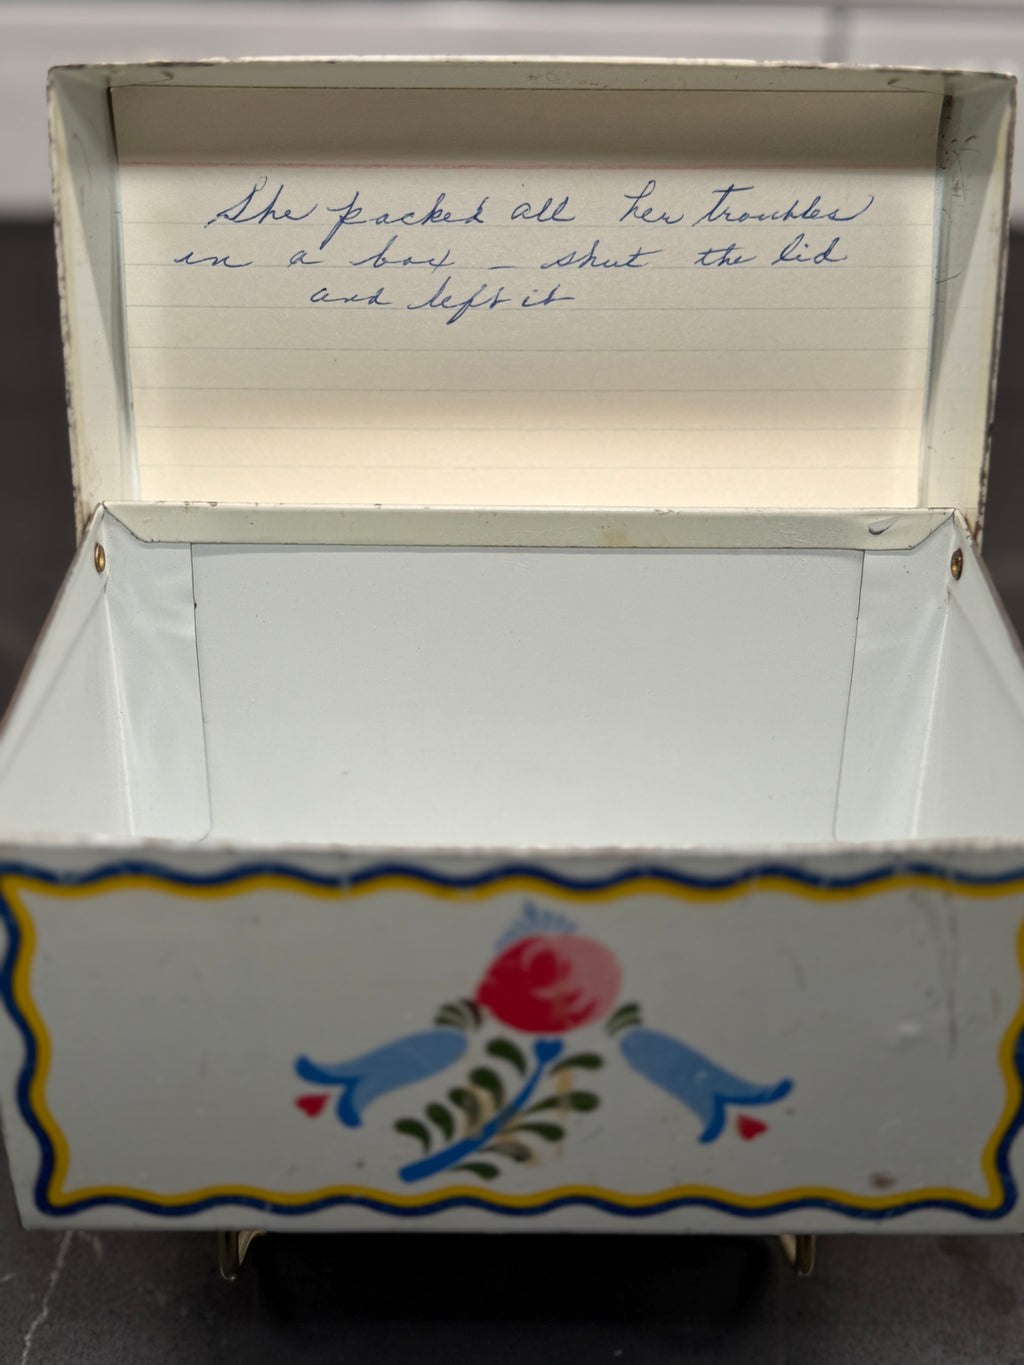 She packed all her troubles
in a box – shut the lid
and left it